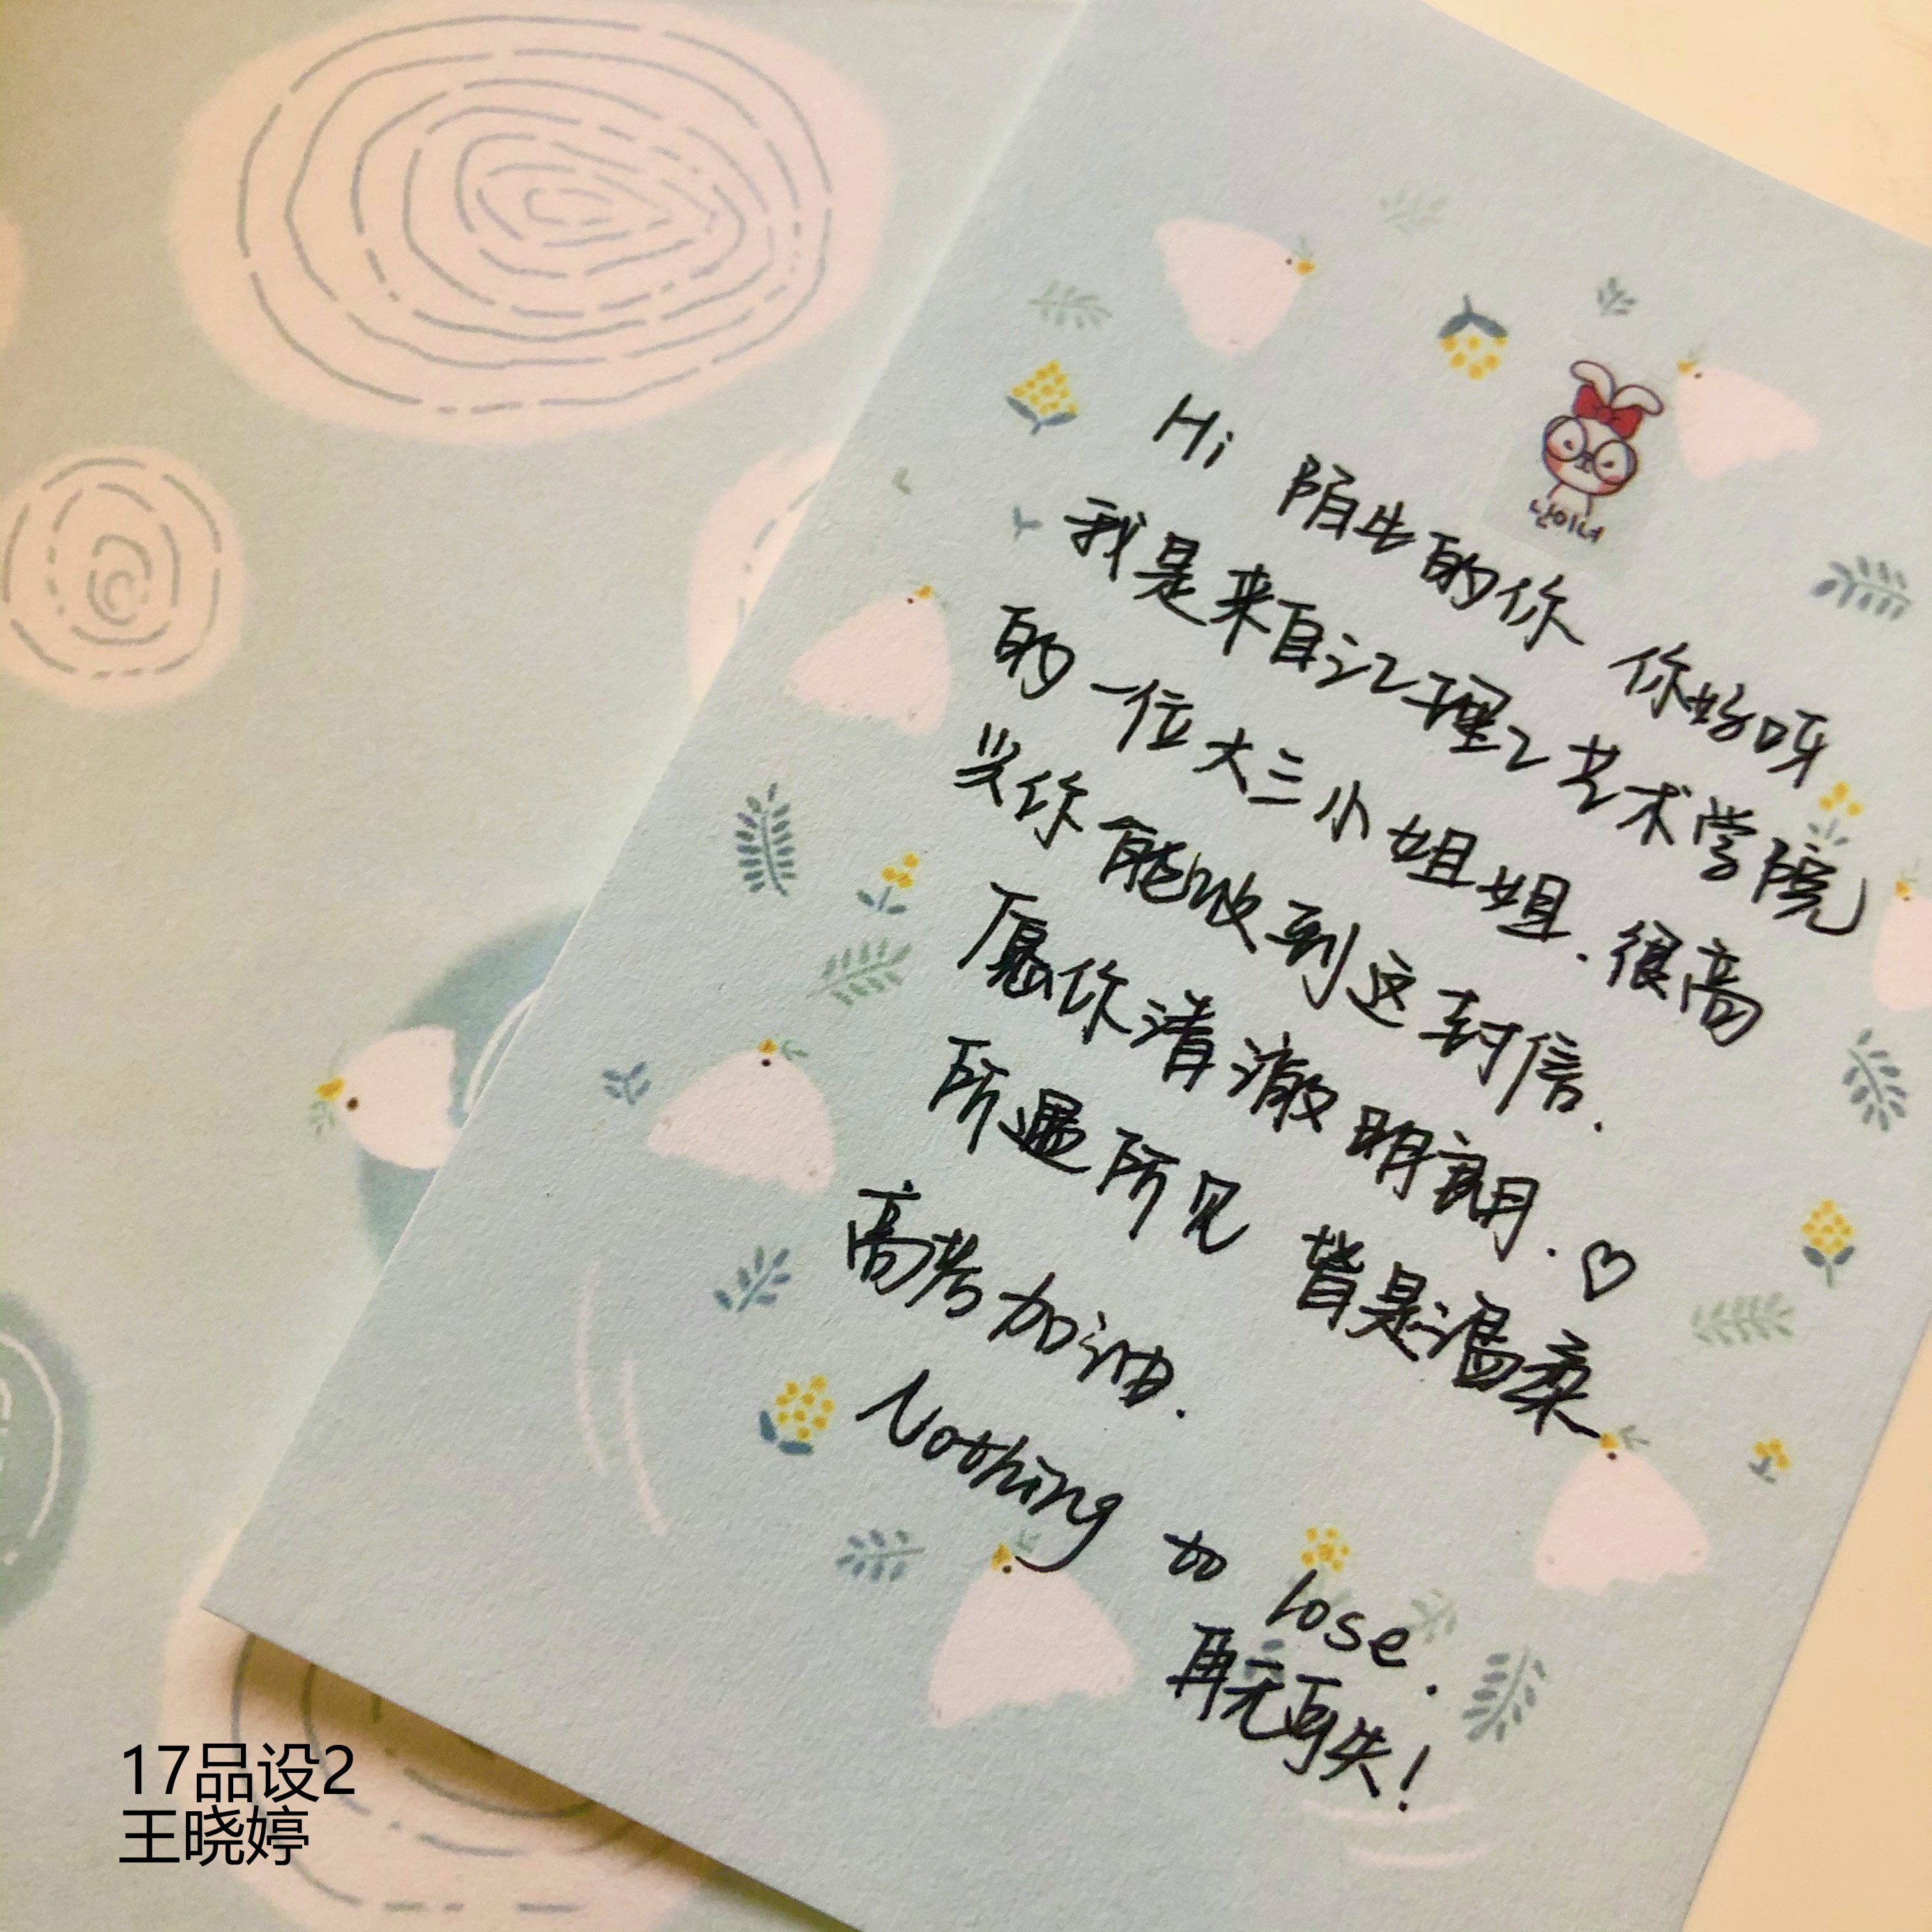 Hi 陌生的你 你好呀
我是来自江理工艺术学院
的一位大三小姐姐.很高
兴你能收到这封信.
愿你清澈明朗.♡
所遇所见 皆是温柔
高考加油.
Nothing to lose.
再无可失!
17品设2
王晓婷